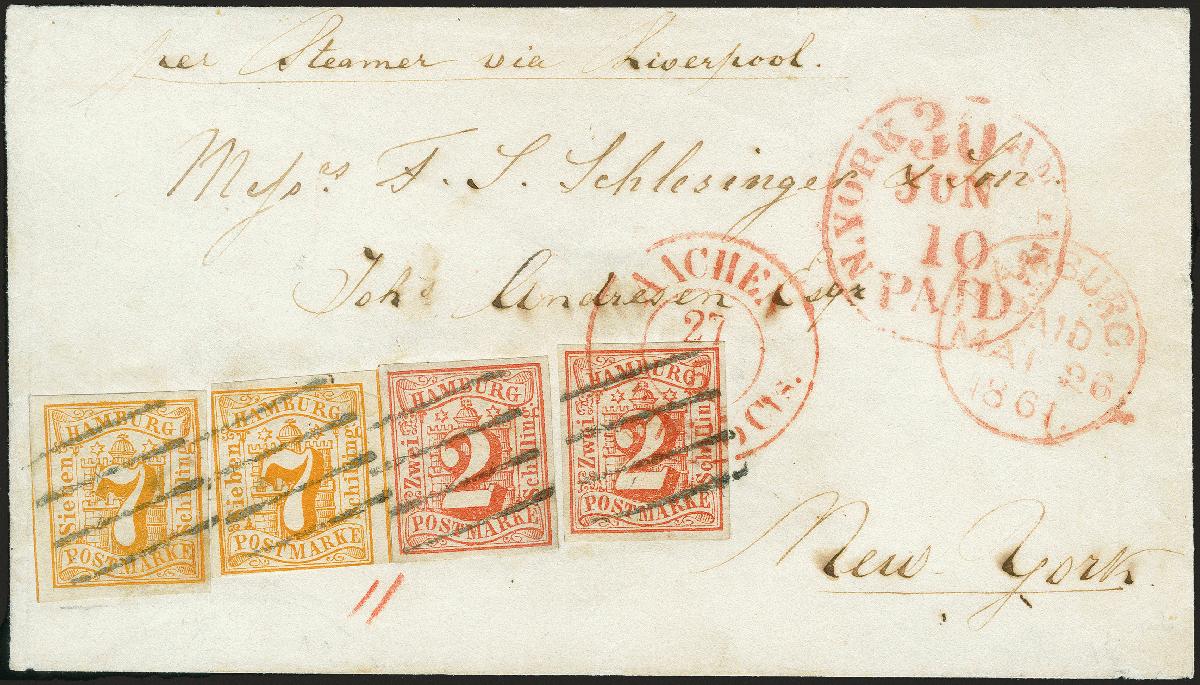 per Steamer via Liverpool.
Messrs F. S. Schlesinger & Son.
Joh Andresen Esqr
New-York
N.YORK
30
JUN
10
PAID
AACHEN
27
2 Cts.
HAMBURG
PAID
MAI 26
1861.
HAMBURG
Sieben
7
Schilling
POSTMARKE
HAMBURG
Sieben
7
Schilling
POSTMARKE
HAMBURG
Zwei
2
Schilling
POSTMARKE
HAMBURG
Zwei
2
Schilling
POSTMARKE